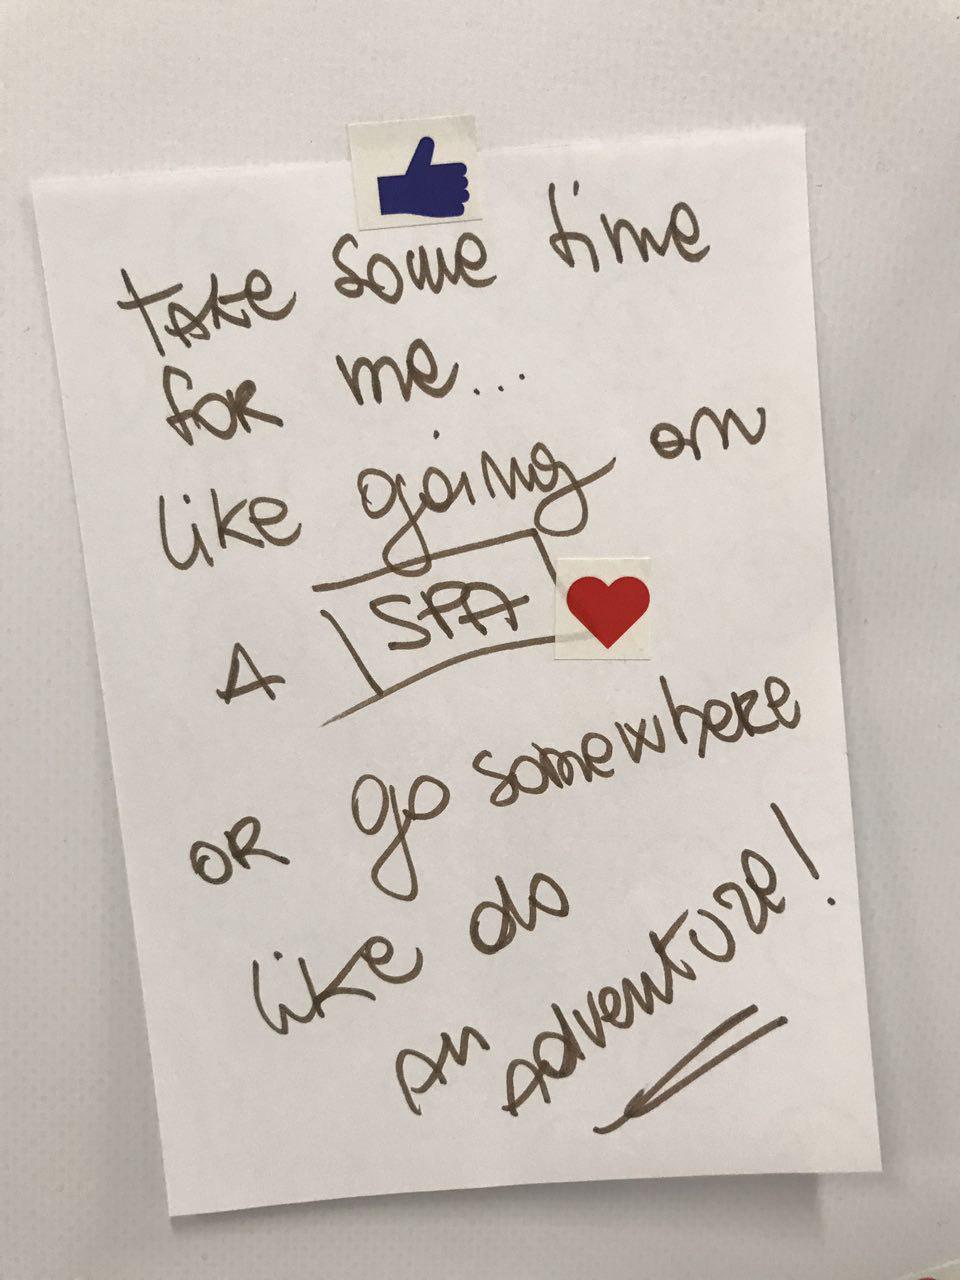 take some time
for me...
like going on
A SPA
or go somewhere
like do
an adventure!